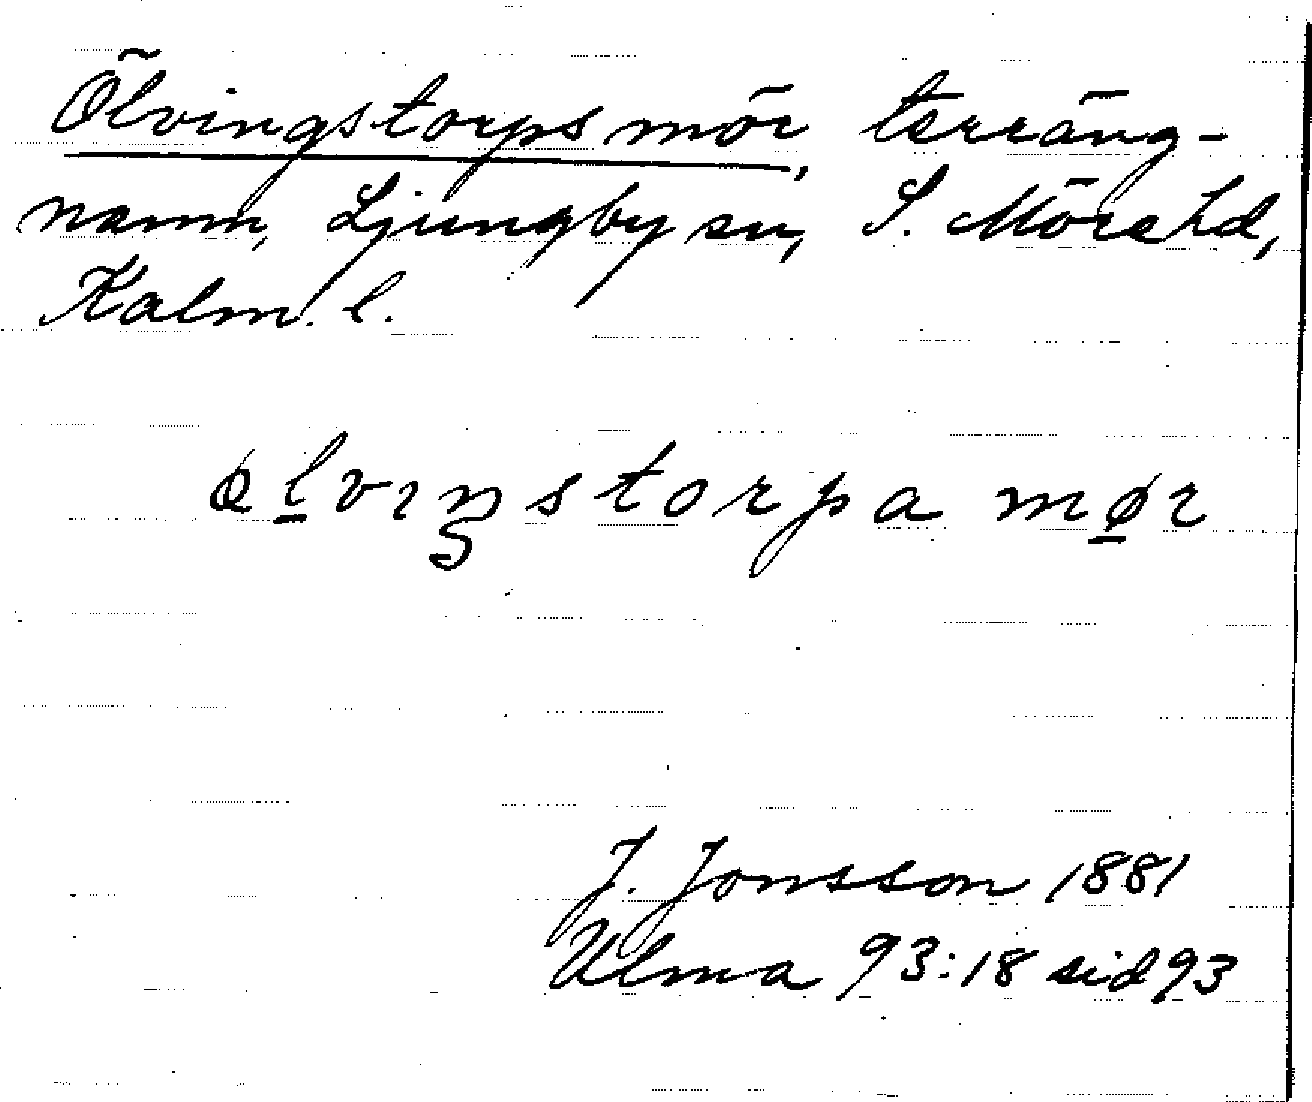 Ölvingstorps mör, terräng-
namn, Ljungby sn, S. Möre hd,
Kalm. l.
ølvıŋstorpa mør
J. Jonsson 1881
Ulma 93:18 sid 93